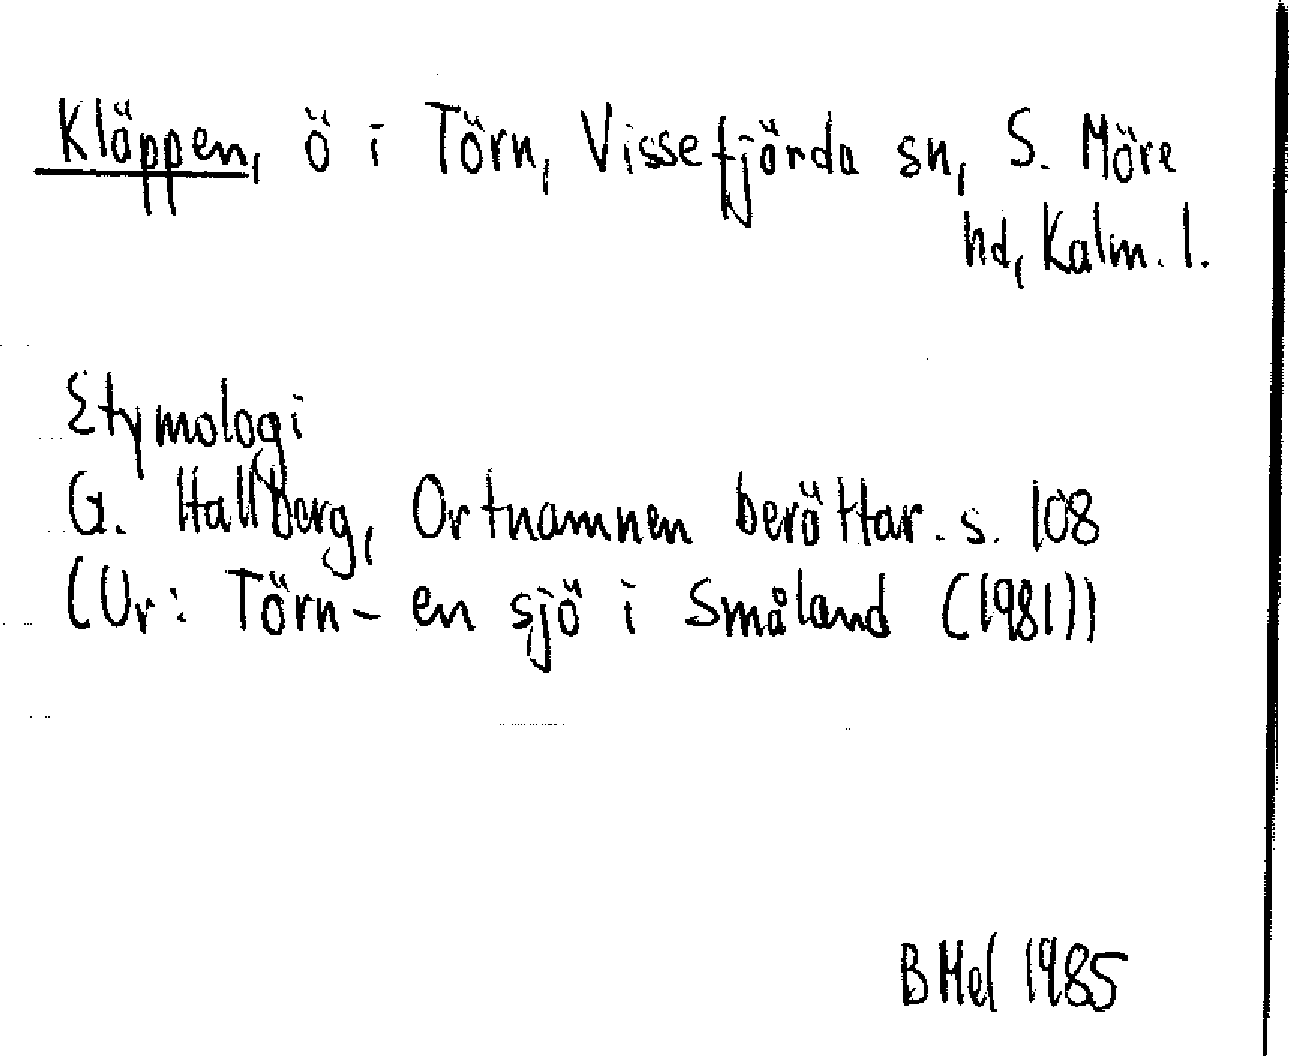 Kläppen, ö i Törn, Vissefjärda sn, S. Möre
hd, Kalm. l.
Etymologi
G. Hallberg, Ortnamnen berättar. s. 108
(Ur: Törn - en sjö i Småland (1981))
B Mel 1985